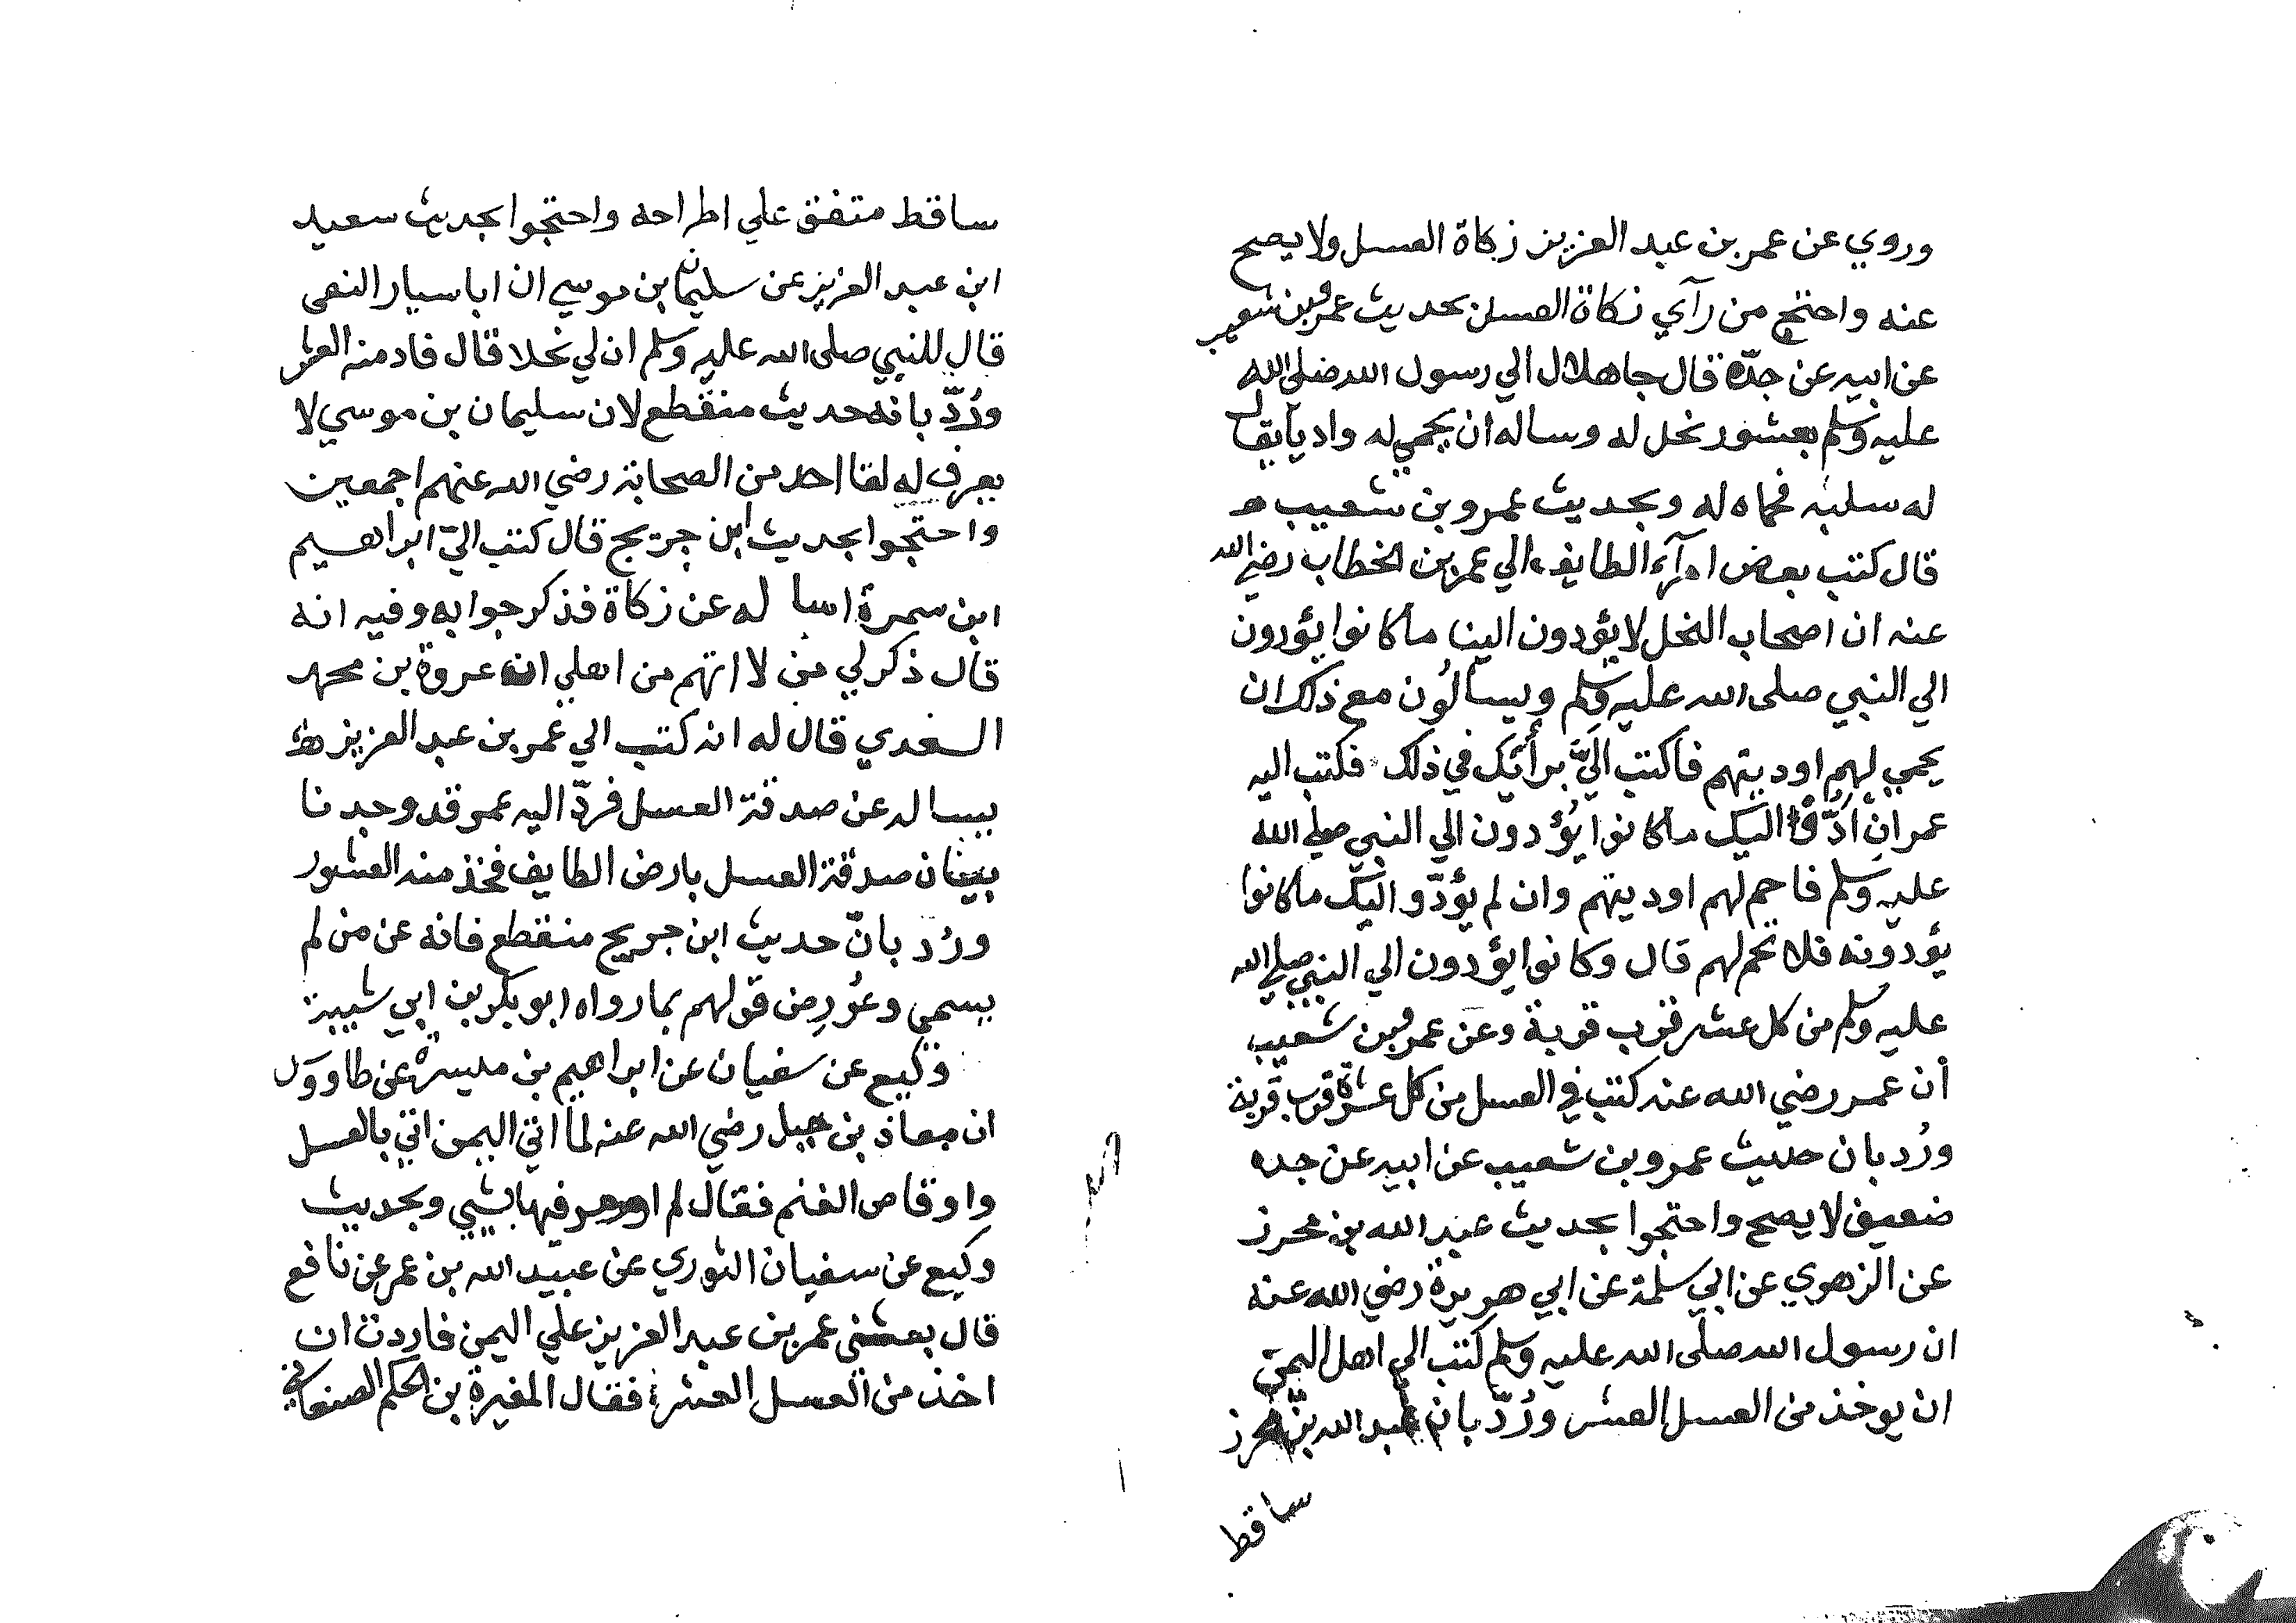 وروي عن عمر بن عبد العزيز زكاة العسل ولا يصح
عنه واحتج من رآي زكاة العسل بحديث عمرو بن شعيب
عن ابيه عن جدّه قال جا هلال الي رسول الله صلى الله
عليه وسلم بعشور نحل له وساله أن يحمي له واديا يقال
له سلبه فحماه له وبحديث عمرو بن شعيب
قال كتب بعض امرآء الطايف الي عمر بن الخطاب رضي الله
عنه ان اصحاب النحل لا يؤدون الينا ما كانوا يؤدون
الي النبي صلى الله عليه وسلم ويسألون مع ذلك ان
يحمي لهم اوديتهم فاكتب اليَّ برأيك في ذلك فكتب اليه
عمر ان أدّوا اليك ما كانوا يُؤدون الي النبي صلى الله
عليه وسلم فاحم لهم اوديتهم وان لم يؤدّوا اليك ما كانوا
يؤدونه فلا تحم لهم قال وكانوا يؤدون الي النبي صلى الله
عليه وسلم من كل عشر قرب قربة وعن عمرو بن شعيب
أن عمر رضي الله عنه كتب في العسل من كل عشرة قرب قربة
ورُد بان حديث عمرو بن شعيب عن ابيه عن جده
ضعيف لا يصح واحتجوا بحديث عبد الله بن محرز
عن الزهري عن ابي سلمة عن ابي هريرة رضي الله عنه
ان رسول الله صلى الله عليه وسلم كتب الي اهل اليمن
ان يوخذ من العسل العشر ورُدّ بان عبد الله بن محرز
ساقط
ساقط متفق علي اطراحه واحتجوا بحديث سعيد
ابن عبد العزيز عن سليمان بن موسي ان ابا سيار
قال للنبي صلى الله عليه وسلم ان لي نحلا قال فاد منه العشر
ورُدّ بانه حديث منقطع لان سليمان بن موسي لا
يعرف له لقا احد من الصحابة رضي الله عنهم اجمعين
واحتجوا بحديث ابن جريج قال كتب اليّ ابراهيم
ابن سمرة اساله عن زكاة فذكر جوابه وفيه انه
قال ذكر لي من لا اتهم من اهلي ان عروة بن محمد
السغدي قال له انه كتب الي عمر بن عبد العزيز
يساله عن صدقة العسل فردّ اليه عمر قد وجدنا
بيان صدقة العسل بارض الطايف فخذ منه العشور
ورُد بانّ حديث ابن جريج منقطع فانه عن من لم
يسمي وعُورِض قولهم بما رواه ابو بكر بن ابي شيبة
وكيع عن سفيان عن ابراهيم بن ميسرة عن طاووس
ان معاذ بن جبل رضي الله عنه لما اتي اليمن اتي بالعسل
واوقاص الغنم فقال لم اومر فيها بشيي وبحديث
وكيع عن سفيان الثوري عن عبيد الله بن عمر عن نافع
قال بعثني عمر بن عبد العزيز علي اليمن فاردت ان
اخذ من العسل العشر فقال المغيرة بن الحكم الصنعاني